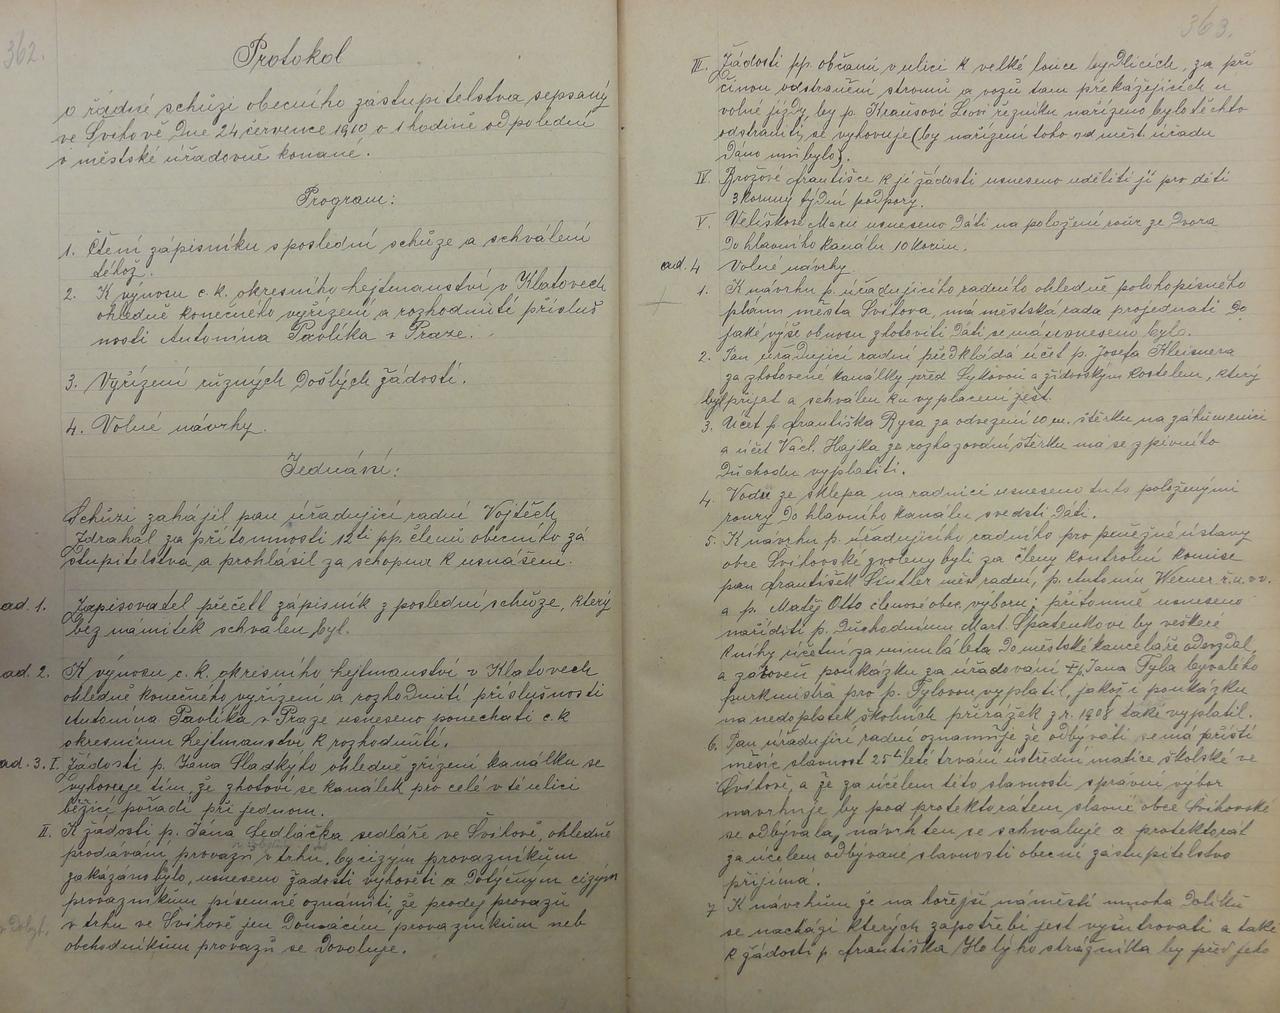 362.
Protokol
o řádné schůzi obecního zastupitelstva sepsaný
ve Švihově dne 24 července 1910 o 1 hodině odpolední
v městské úřadovně konané.
Program:
1. Čtení zápisníku s poslední schůze a schválení
téhož.
2. K výnosu c. k. okresního hejtmanství v Klatovech
ohledně konečného vyřízení a rozhodnutí přísluš
nosti Antonína Pavlíka v Praze.
3. Vyřízení různých došlých žádostí.
4. Volné návrhy.
Jednání:
Schůzi zahájil pan úřadující radní Vojtěch
Zdrahál za přítomnosti 12ti pp. členů obecního zá
stupitelstva a prohlásil za schopnu k usnášení.
ad. 1. Zapisovatel přečetl zápisník z poslední schůze, který
bez námitek schválen byl.
ad 2. K výnosu c. k. okresního hejtmanství v Klatovech
ohledně konečného vyřízení a rozhodnutí příslušnosti
Antonína Pavlíka v Praze usneseno ponechati c. k
okresnímu hejtmanství k rozhodnutí.
ad. 3. I. Žádosti p. Jana Sladkýho ohledně zřízení kanálku se
vyhovuje tím, že zhotoví se kanálek pro celé v té ulici
běžící pořadí při jednom.
II. K žádosti p. Jána Sedláčka, sedláře ve Švihově, ohledně
prodávání provazů v trhu, by cizým provazníkům
zakázáno bylo, usneseno žádosti vyhověti a dotyčným cizým
provazníkům písemně oznámiti, že prodej provazů
v trhu ve Švihově jen domácím provazníkům neb
obchodníkům provazů se dovoluje.
363.
III. Žádosti pp. občanů v ulici k velké louce bydlících, za pří
činou odstranění stromů a vozů tam překážejících u
volné jízdy, by p. Krausovi Leovi řezníku nařízeno bylo těchto
odstraniti, se vyhovuje (by nařízení toto od měst. úřadu
dáno mu bylo).
IV. Brožové Františce k její žádosti usneseno uděliti jí pro děti
3 koruny týdní podpory.
V. Velíškové Marii usneseno dáti na položení rour ze dvora
do hlavního kanálu 10 korun.
ad. 4 Volné návrhy.
1. K návrhu p. úřadujícího radního ohledně polohopisného
plánu města Švihova, má městská rada projednati do
jaké výše obnosu zhotoviti dáti se má usneseno bylo.
2. Pan úřadující radní předkládá účet p. Josefa Kleisnera
za zhotovené kanálky před Sykovou a židovským kostelem, který
byl přijat a schválen ku vyplacení jest.
3. Účet p. Františka Rysa za odvezení 10 m. štěrku na záhumenici
a účet Václ. Hajka za rozhazování štěrku má se z pivního
důchodu vyplatiti.
4. Vodu ze sklepa na radnici usneseno tuto položenými
roury do hlavního kanálu svedsti dáti.
5. K návrhu p. úřadujícího radního pro peněžné ústavy
obce Švihovské zvoleny byli za členy kontrolní komise
pan František Šindler měst. radní, p. Antonín Werner
a p. Matěj Otto členové obec. výboru; přítomně usneseno
naříditi p. důchodnímu Mart. Spatenkove by veškeré
knihy účetní za minulá léta do městské kanceláře odevzdal,
a zároveň poukázku za úřadování Jana Tyla bývalého
purkmistra pro p. Tylovou vyplatil, jakož i poukázku
na nedoplatek školních přirážek z r. 1908 také vyplatil.
6. Pan úřadující radní oznamuje že odbývati se má příští
měsíc slavnost 25 leté trvání ústřední matice školské ve
Švihově, a že za účelem této slavnosti správní výbor
navrhuje by pod protektorátem slavné obce Švihovské
se odbývala, návrh ten se schvaluje a protektorát
za účelem odbývané slavnosti obecní zástupitelstvo
přijímá.
7 K návrhům že na hořejší náměstí mnoho dolíků
se nachází kterých zapotřebí jest vyšutrovati a také
k žádosti p. Františka Holýho strážníka by před jeho